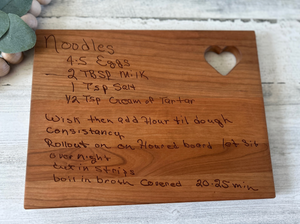 Noodles
4-5 Eggs
2 TBSP Milk
1 Tsp Salt
1/2 Tsp Cream of Tartar
Wisk then add flour til dough
consistancy.
Rollout on on floured board let sit
over night
cut in strips
boil in broth covered 20-25 min